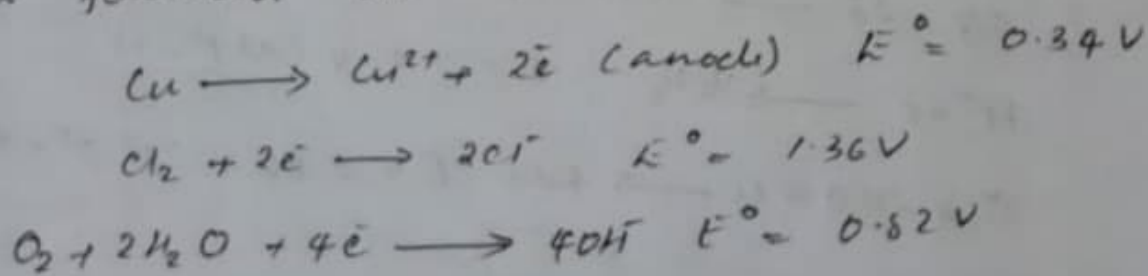 Cu ⟶ Cu²⁺ + 2ē (anode) E° = 0.34 V
Cl₂ + 2ē ⟶ 2Cl⁻ E° = 1.36 V
O₂ + 2H₂O + 4ē ⟶ 4OH⁻ E° = 0.82 V